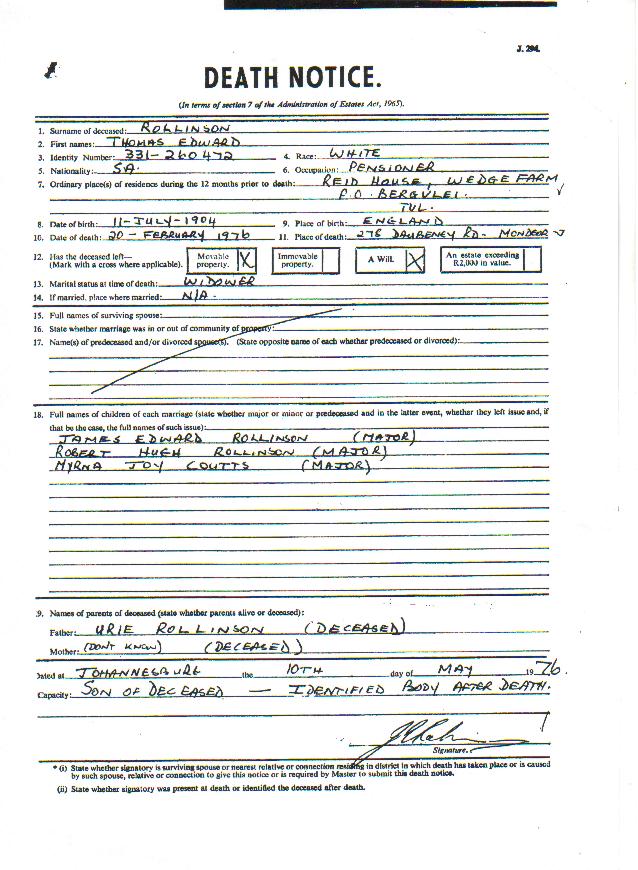 J. 294.
DEATH NOTICE.
(In terms of section 7 of the Administration of Estates Act, 1965).
1. Surname of deceased: ROLLINSON
2. First names: THOMAS EDWARD
3. Identity Number: 331-260472 4. Race: WHITE
5. Nationality: SA. 6. Occupation: PENSIONER
7. Ordinary place(s) of residence during the 12 months prior to death: REID HOUSE, WEDGE FARM
P.O. BERGVLEI.
TVL.
8. Date of birth: 11-JULY-1904 9. Place of birth: ENGLAND
10. Date of death: 20-FEBRUARY 1976 11. Place of death: 278 DAUBENEY RD- MONDEOR
12. Has the deceased left— Movable X Immovable A Will. X An estate exceeding
(Mark with a cross where applicable). property. property. R2,000 in value.
13. Marital status at time of death: WIDOWER
14. If married, place where married: N/A.
15. Full names of surviving spouse:
16. State whether marriage was in or out of community of property:
17. Name(s) of predeceased and/or divorced spouse(s). (State opposite name of each whether predeceased or divorced):
18. Full names of children of each marriage (state whether major or minor or predeceased and in the latter event, whether they left issue and, if
that be the case, the full names of such issue):
JAMES EDWARD ROLLINSON (MAJOR)
ROBERT HUGH ROLLINSON (MAJOR)
MYRNA JOY COUTTS (MAJOR)
9. Names of parents of deceased (state whether parents alive or deceased):
Father: URIE ROLLINSON (DECEASED)
Mother: (DONT KNOW) (DECEASED)
Dated at JOHANNESBURG the 10TH day of MAY 1976.
Capacity: SON OF DECEASED — IDENTIFIED BODY AFTER DEATH.
Signature.
* (i) State whether signatory is surviving spouse or nearest relative or connection residing in district in which death has taken place or is caused
by such spouse, relative or connection to give this notice or is required by Master to submit this death notice.
(ii) State whether signatory was present at death or identified the deceased after death.